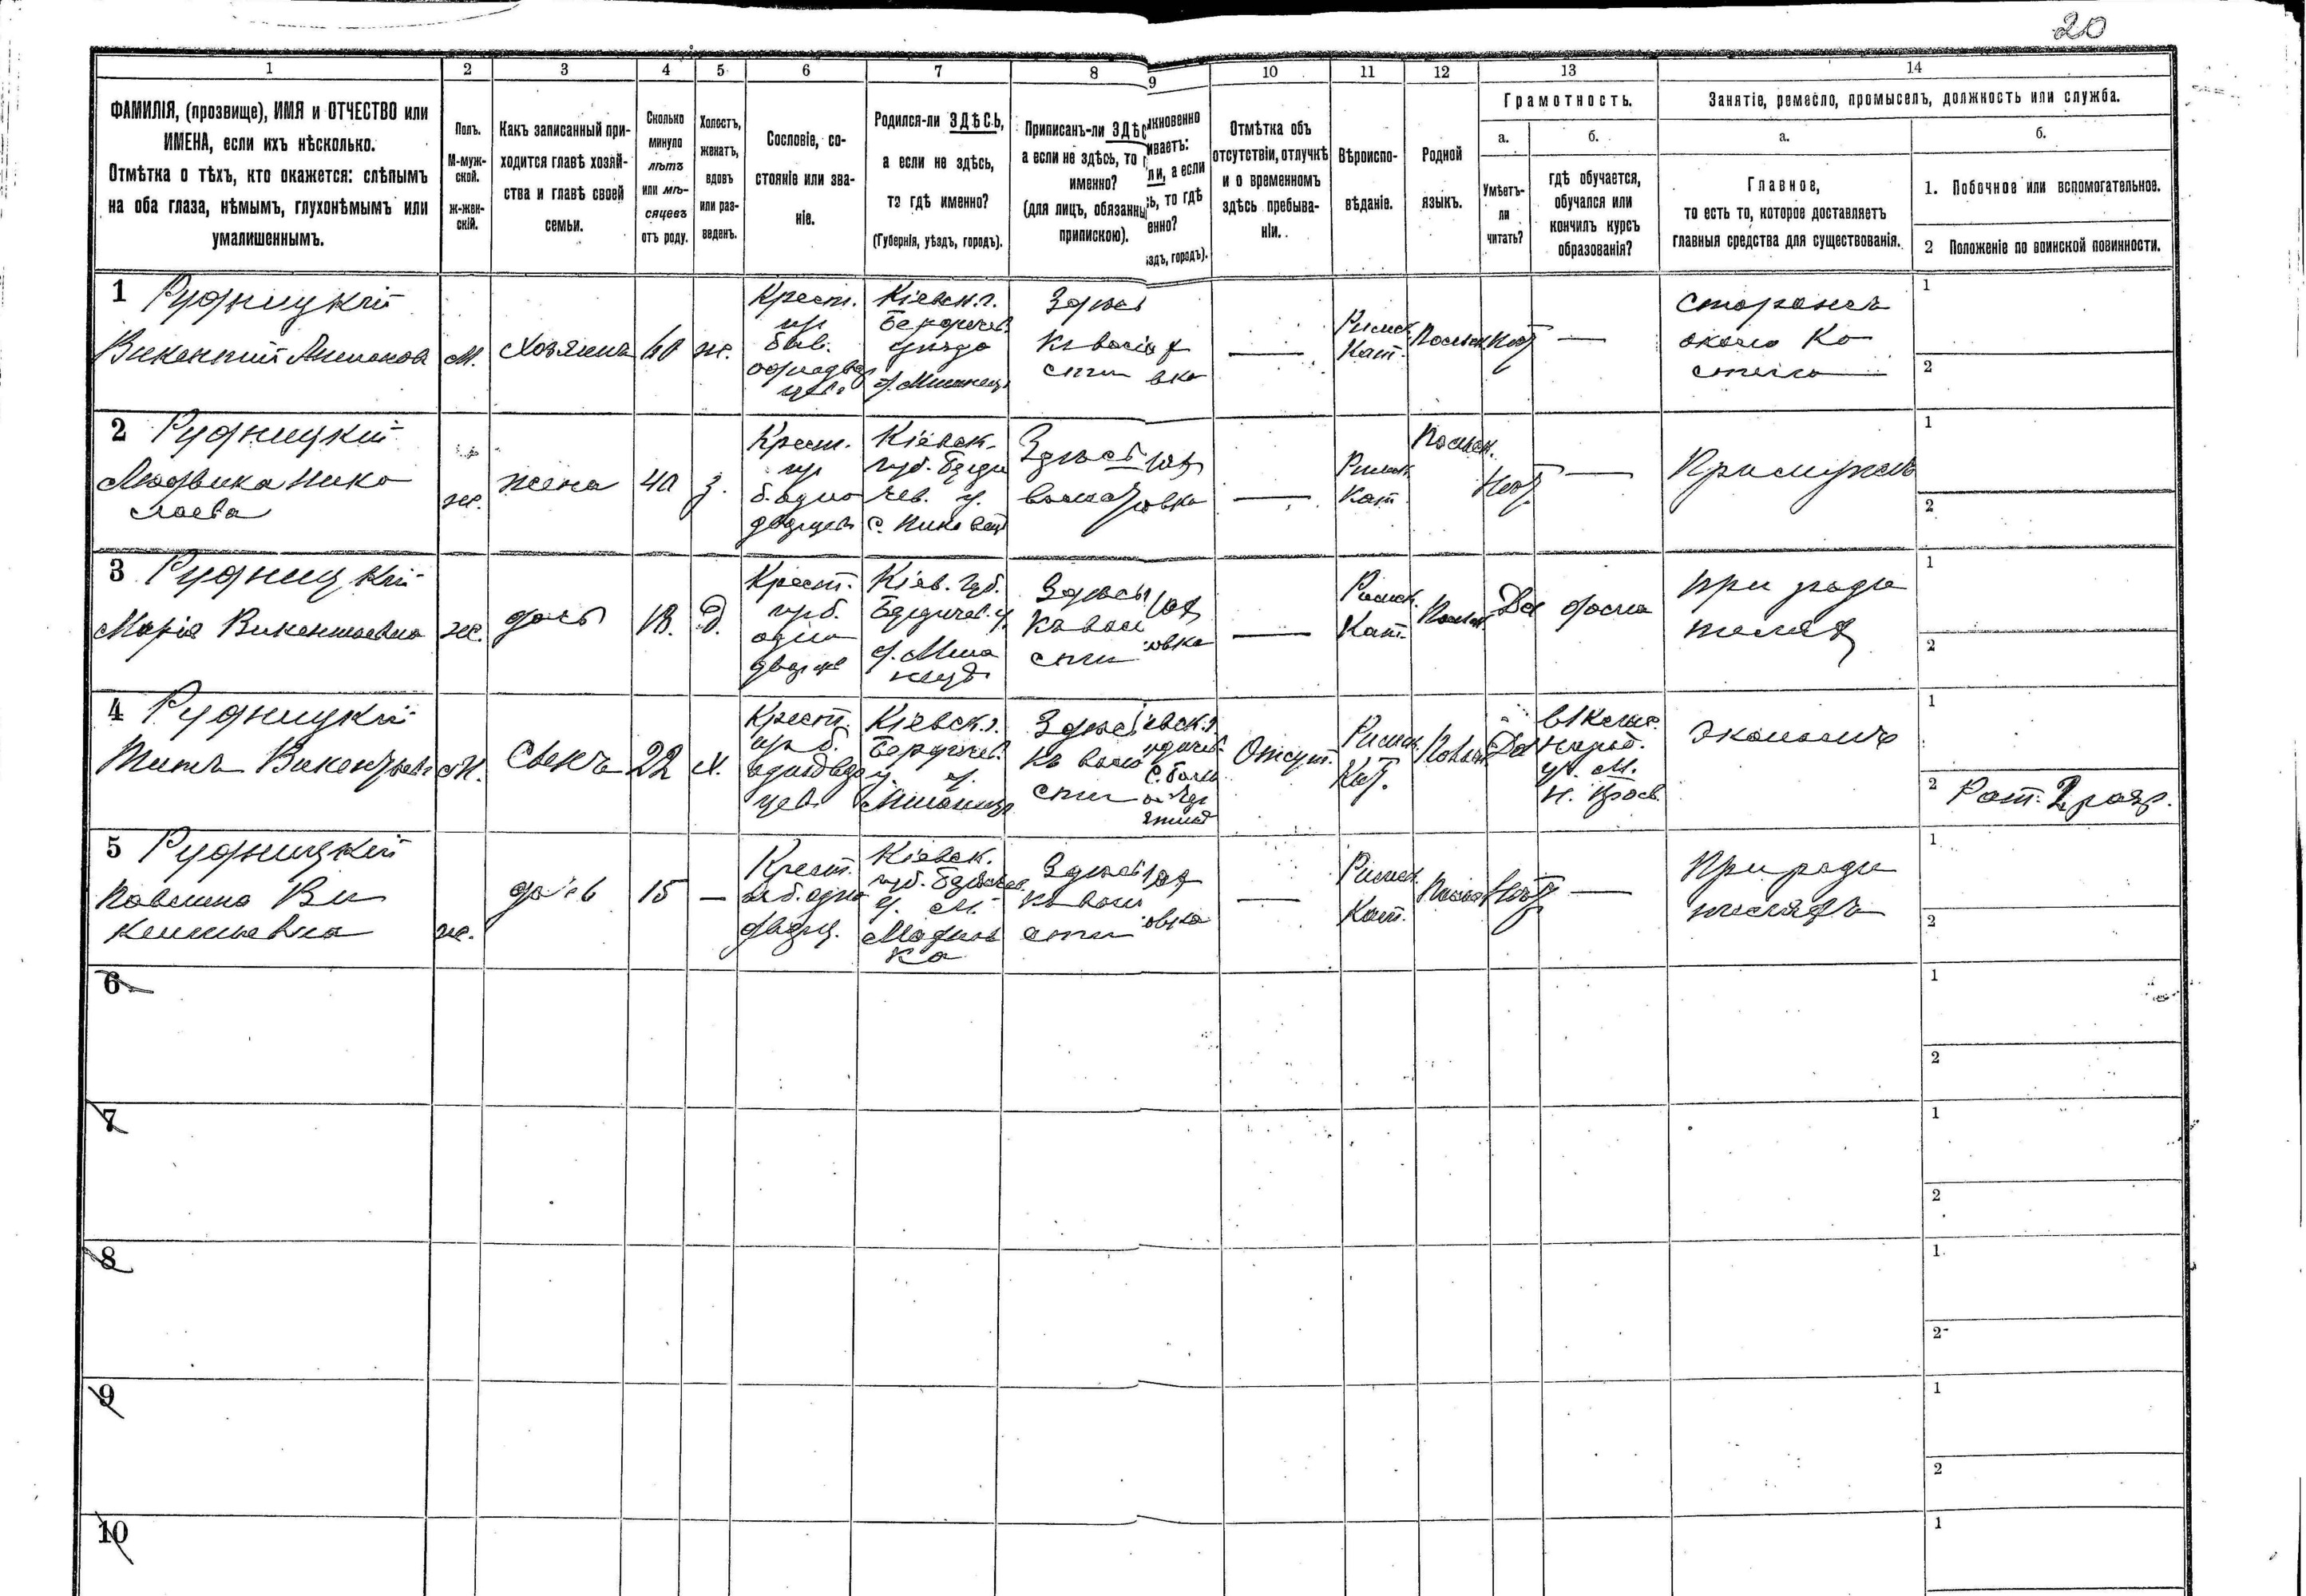 20
1 2 3 4 5 6 7 8 9 10 11 12 13 14
ФАМИЛІЯ, (прозвище), ИМЯ и ОТЧЕСТВО или
ИМЕНА, если ихъ нѣсколько.
Отмѣтка о тѣхъ, кто окажется: слѣпымъ
на оба глаза, нѣмымъ, глухонѣмымъ или
умалишеннымъ.
Полъ.
М-муж-
ской.
ж-жен-
скій.
Какъ записанный при-
ходится главѣ хозяй-
ства и главѣ своей
семьи.
Сколько
минуло
лѣтъ
или мѣ-
сяцевъ
отъ роду.
Холостъ,
женатъ,
вдовъ
или раз-
веденъ.
Сословіе, со-
стояніе или зва-
ніе.
Родился-ли ЗДѢСЬ,
а если не здѣсь,
то гдѣ именно?
(Губернія, уѣздъ, городъ).
Приписанъ-ли ЗДѢС
а если не здѣсь, то г
именно?
(для лицъ, обязанны
припискою).
икновенно
иваетъ:
ли, а если
ь, то гдѣ
енно?
здъ, городъ).
Отмѣтка объ
отсутствіи, отлучкѣ
и о временномъ
здѣсь пребыва-
ніи.
Вѣроиспо-
вѣданіе.
Родной
языкъ.
Грамотность.
а.
Умѣетъ-
ли
читать?
б.
гдѣ обучается,
обучался или
кончилъ курсъ
образованія?
Занятіе, ремесло, промыселъ, должность или служба.
а.
Главное,
то есть то, которое доставляетъ
главныя средства для существованія.
б.
1. Побочное или вспомогательное.
2 Положеніе по воинской повинности.
1 Рудницкій
Викентій Антонов
М.
Хозяинъ
60
ж.
Крест.
из
быв.
однодвор
цевъ
Кіевск. г.
Бердичев.
уѣзда
Здѣсь
къ волос
сти
вка
—
Римск.
Кат.
Польск
Нѣт
—
Сторожъ
около Ко
стела
1
2
2 Рудницкій
Людвика Нико
лаева
ж.
жена
40
з.
Крест.
из
б. одно
дворцевъ
Кіевск.
губ. Берди
чев. у.
Здѣсь
овка
—
Римск.
Кат.
Польск.
Нѣт
—
При мужѣ
1
2
3 Рудницкій
Марія Викентьевна
ж.
дочь
18.
Д.
Крест.
из б.
одно
дворце
Кіев. Губ.
Бердичев. у.
Здѣсь
Къ воло
сти
овка
—
Римск.
Кат.
Польск.
Да
дома
При роди
теляхъ
1
2
4 Рудницкій
Титъ Викентьевъ
М.
Сынъ
22
х.
Крест.
из б.
однодвор
цевъ
Кіевск. г.
Бердичев.
у.
Здѣсь
Къ воло
сти
іевск. г.
Отсут.
Римск.
Кат.
Польск
Да
М.
н. просв.
Экономъ
1
2 Рат. 2 разр.
5 Рудницкій
Павлина Ви
кентьевна
ж.
дочь
15
—
Крест.
из б. одно
дворц.
Кіевск.
губ. Бердичев.
у. М.
Махнов
ка
Здѣсь
Къ воло
сти
овка
—
Римск.
Кат.
Польск
Нѣт
—
При роди
теляхъ
1
2
6
1
2
7
1
2
8
1
2
9
1
2
10
1